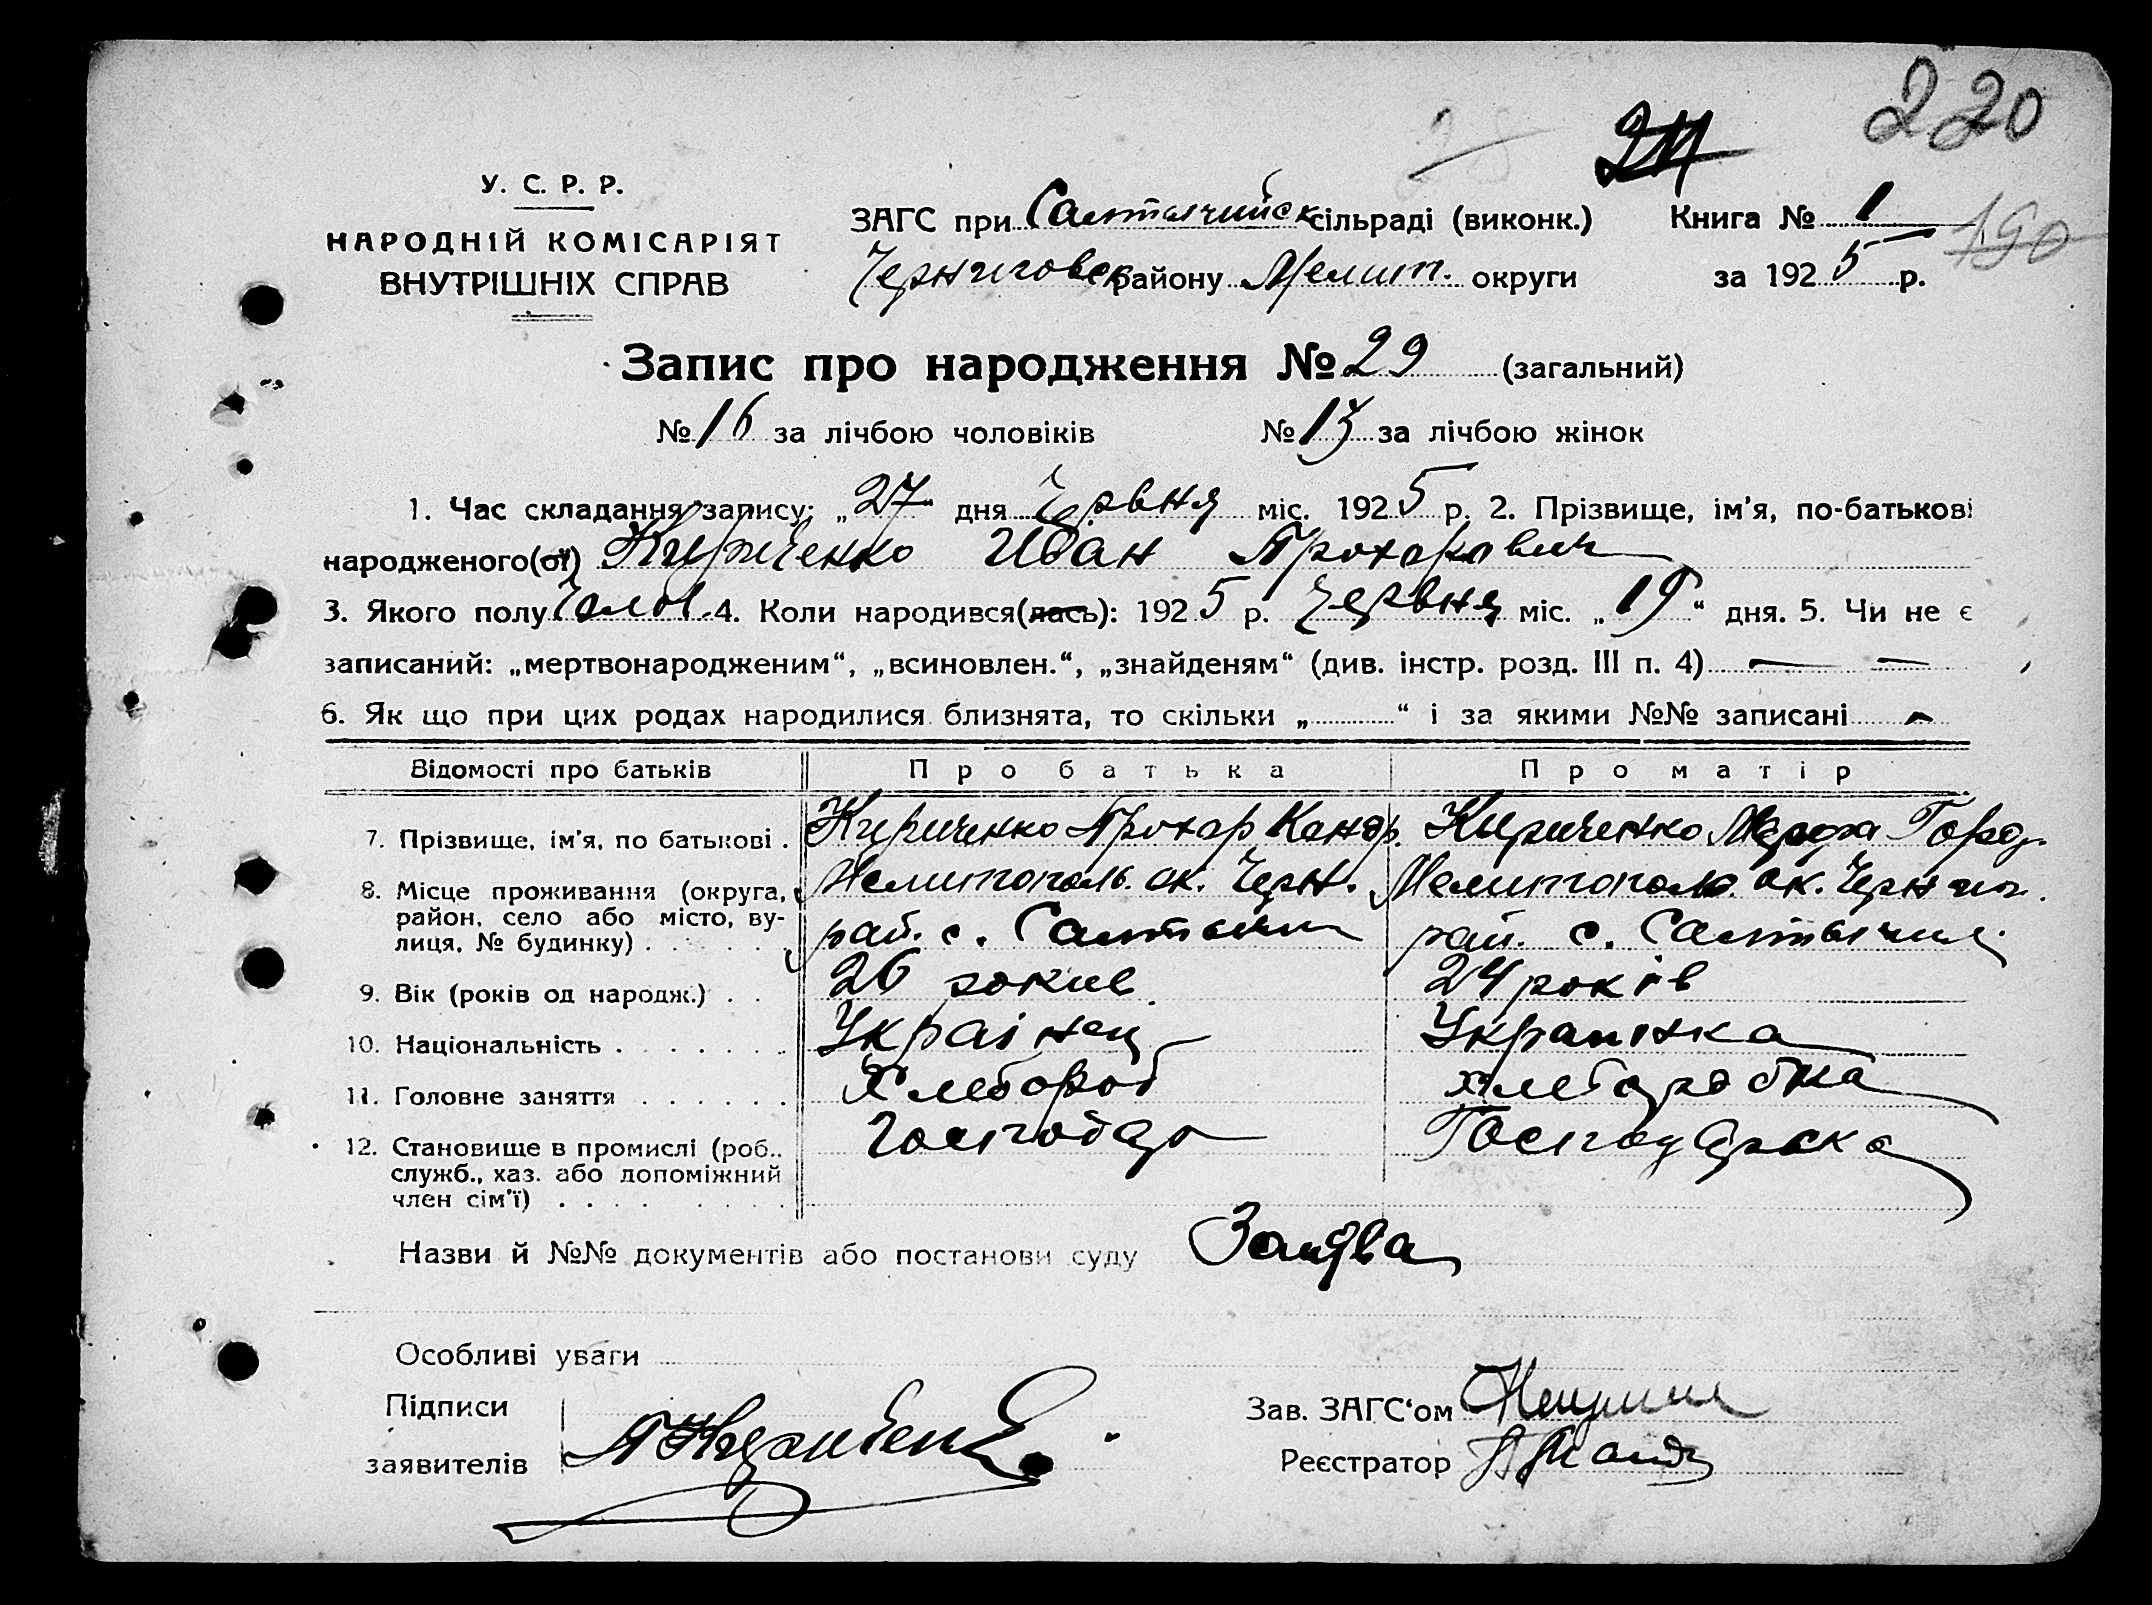 220
28
211
У. С. Р. Р.
НАРОДНІЙ КОМІСАРІЯТ
ВНУТРІШНІХ СПРАВ
ЗАГС при Салтычийск сільраді (виконк.) Книга № 1
190
Черниговск району Мелит. округи за 1925 р.
Запис про народження № 29 (загальний)
№ 16 за лічбою чоловіків № 13 за лічбою жінок
1. Час складання запису: „27“ дня Червня міс. 1925 р. 2. Прізвище, ім'я, по-батькові
народженого(ої) Кириченко Иван Прохорович
3. Якого полу Чолов. 4. Коли народився(лась): 1925 р. Червня міс. „19“ дня. 5. Чи не є
записаний: „мертвонародженим“, „всиновлен.“, „знайденям“ (див. інстр. розд. III п. 4) — —
6. Як що при цих родах народилися близнята, то скільки „ “ і за якими №№ записані -
Відомості про батьків Про батька Про матір
7. Прізвище, ім'я, по батькові . Кириченко Прохор Кандр. Кириченко Марфа Горд.
8. Місце проживання (округа, район, село або місто, вулиця, № будинку) . Мелитополь. ок. Черн. Мелитополь. ок. Черниг.
рай. с. Салтычии рай. с. Салтычии
9. Вік (років од народж.) . . 26 рокив 24 років
10. Національність . Украінец Украинка
11. Головне заняття . Хлебороб хлеборобка
12. Становище в промислі (роб.. служб., хаз. або допоміжний член сім'ї) . Господар Господарка
Назви й №№ документів або постанови суду Заидва
Особливі уваги
Підписи Зав. ЗАГС'ом
заявителів Реєстратор